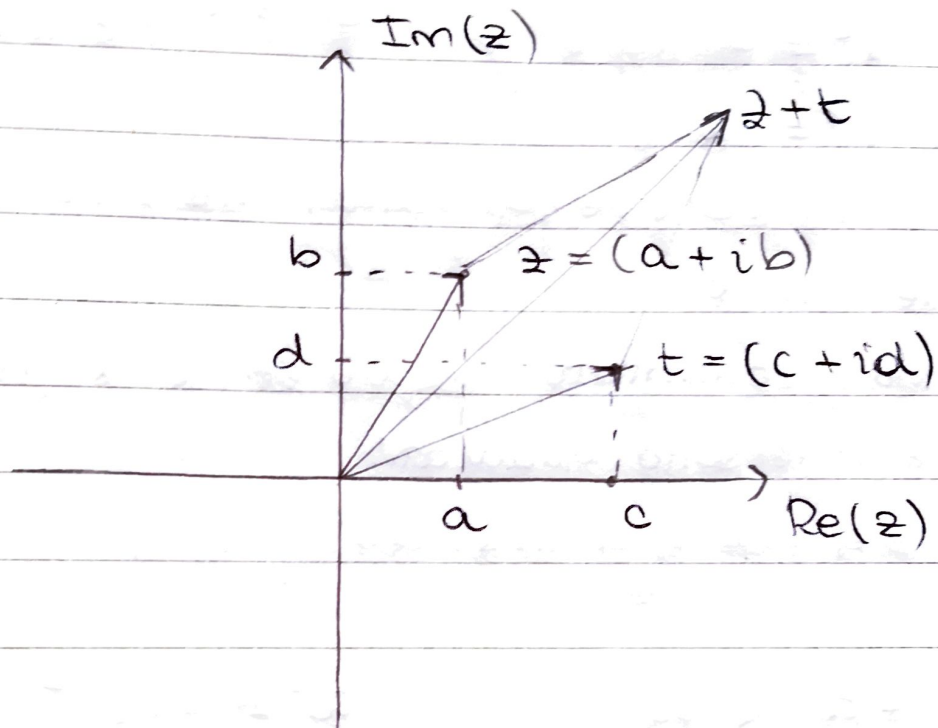 Im(z)
z+t
b
z = (a+ib)
d
t = (c+id)
a
c
Re(z)